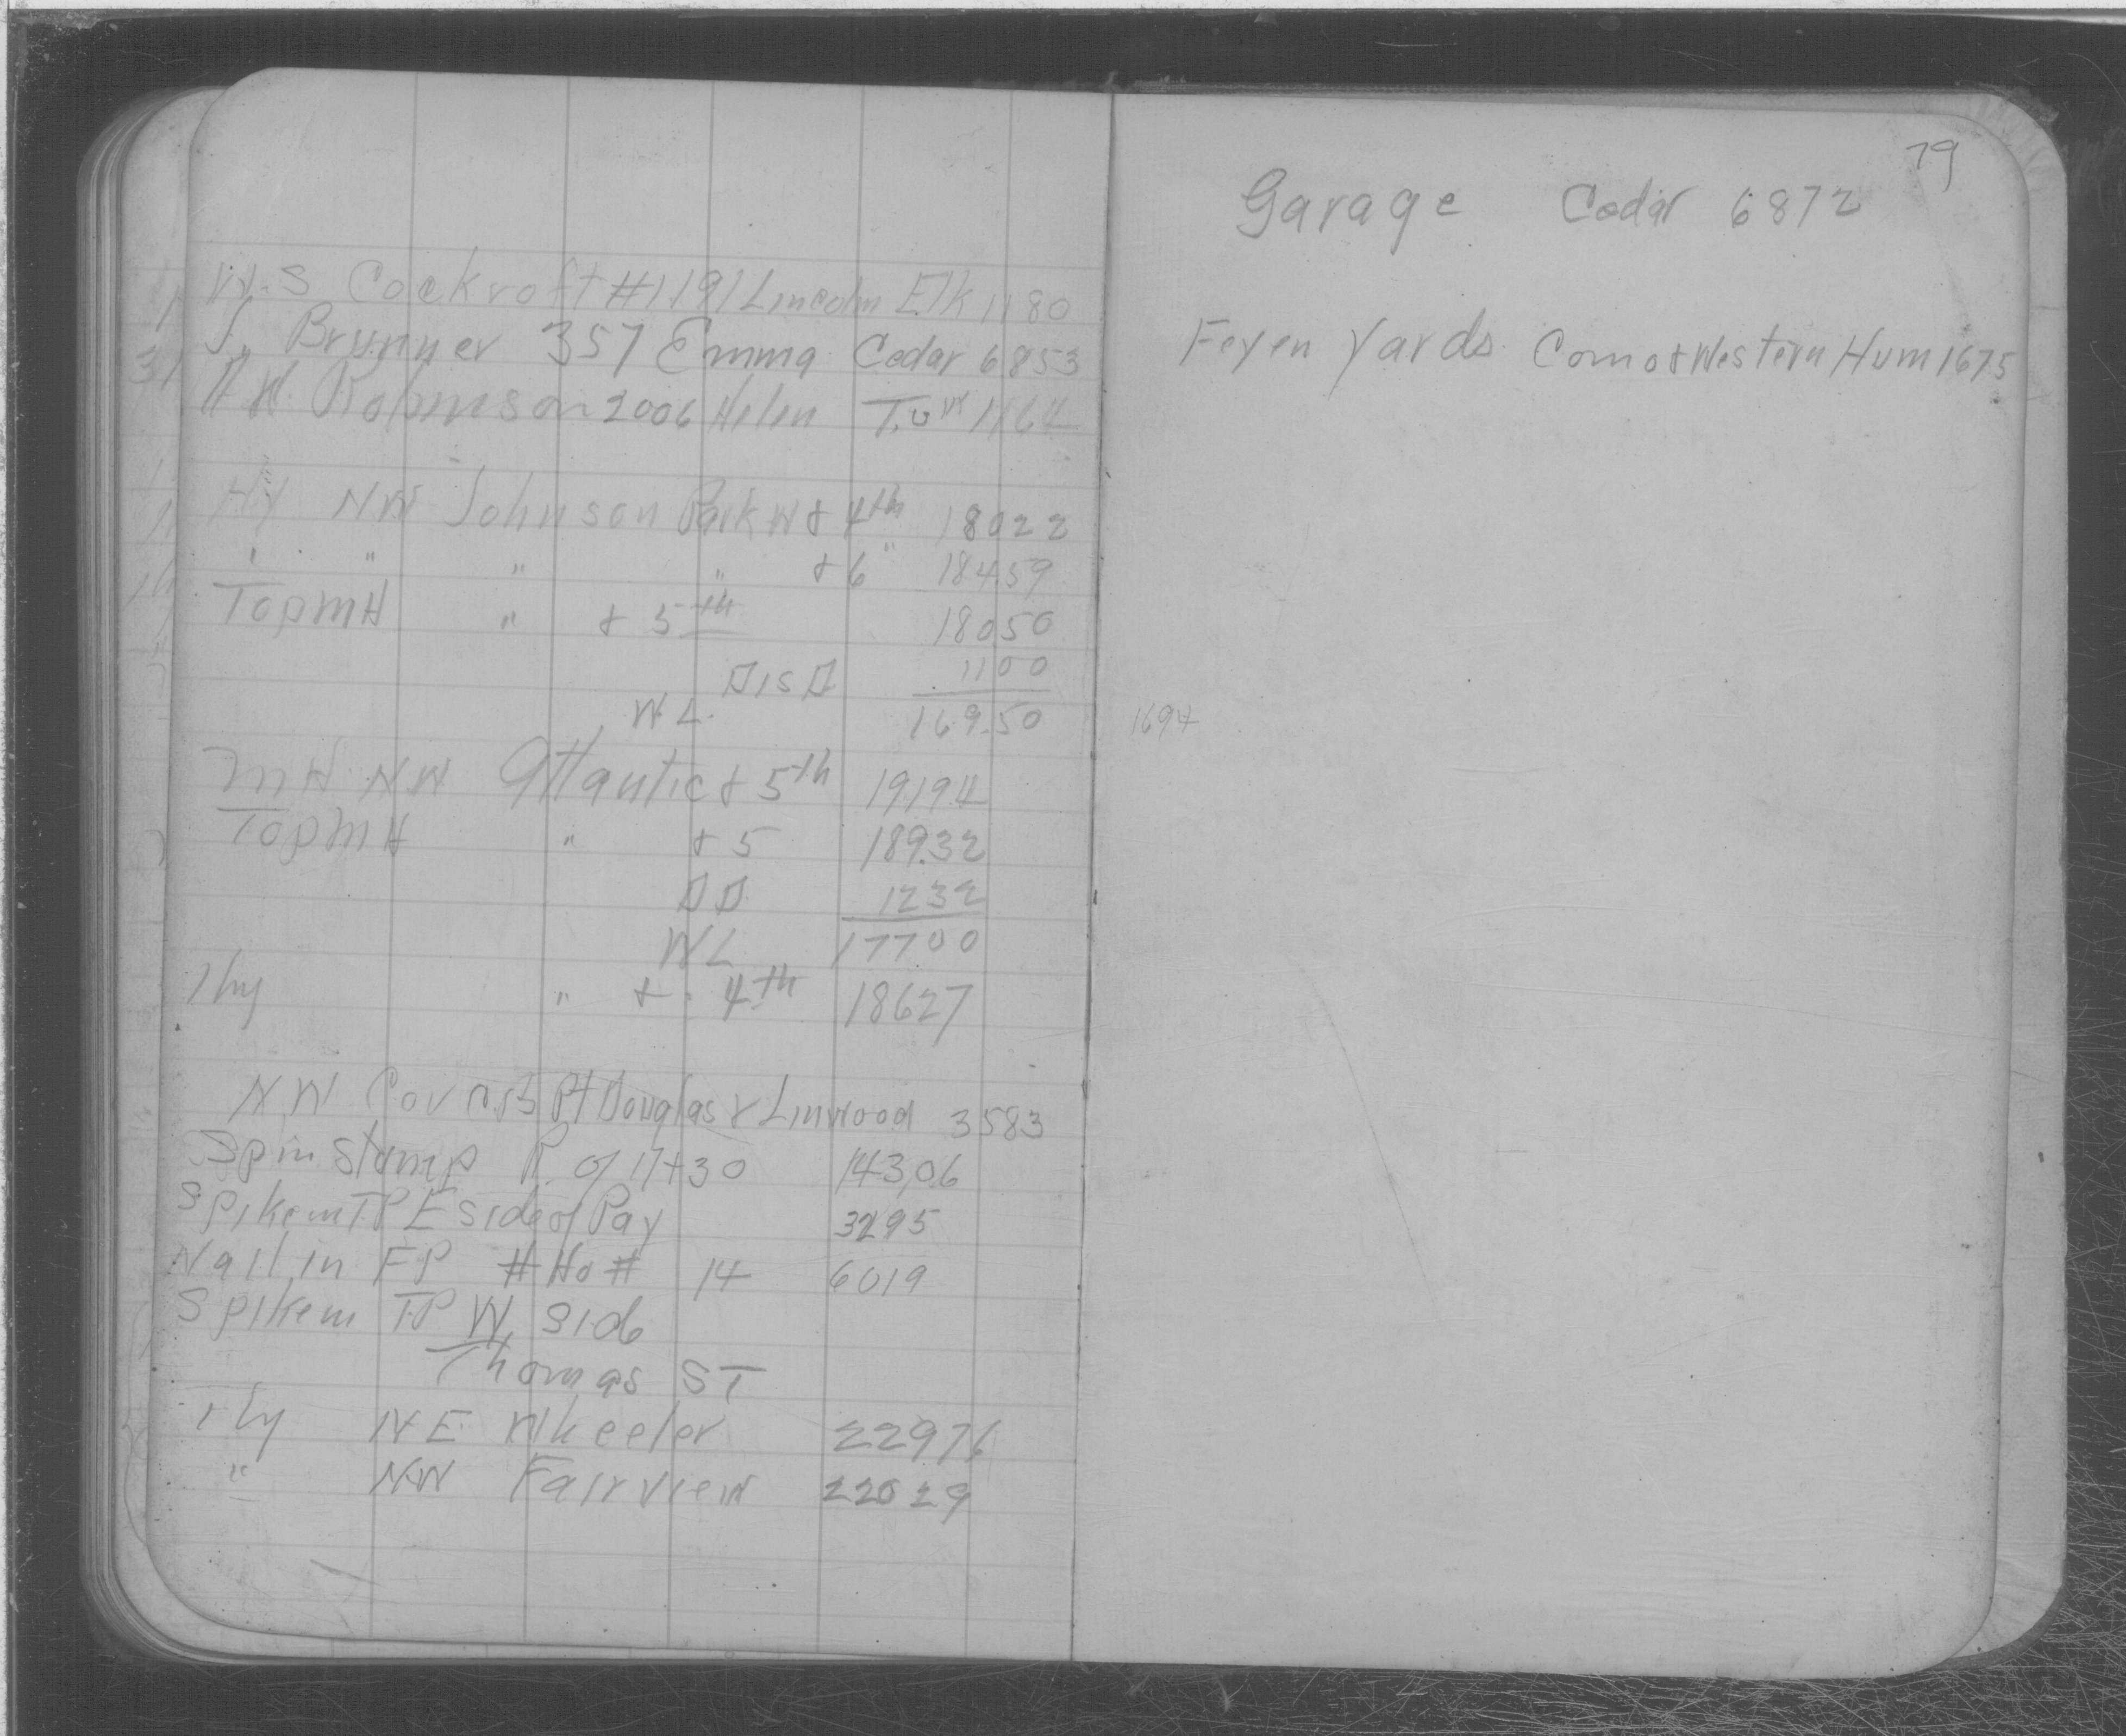 W.S Cockroft #1191 Lincoln Elk 1180
J. Brunner 357 Emma Cedar 6853
A W Robinson 2006 Helen Tow 1164
Hy NW Johnson Parkw & 4th 18022
" " " " & 6 " 18459
Top MH " & 5th 18050
Dis D 1100
W L. 169.50
MH NW Atlantic & 5th 19194
Top MH " & 5 189.32
D D 1232
W L 17700
Hy " & 4th 18627
NW Cor Pt Douglas & Linwood 3583
Sp in Stamp R. of 17+30 143,06
Spike in T.P E side of Pay 3295
Nail in FP # Ho # 14 6019
Spike in T.P W. Side
Thomas ST
Hy NE Wheeler 22976
" NW Fairview 22029
79
Garage Cedar 6872
Feyen Yards Como & Western Hum 1675
1694